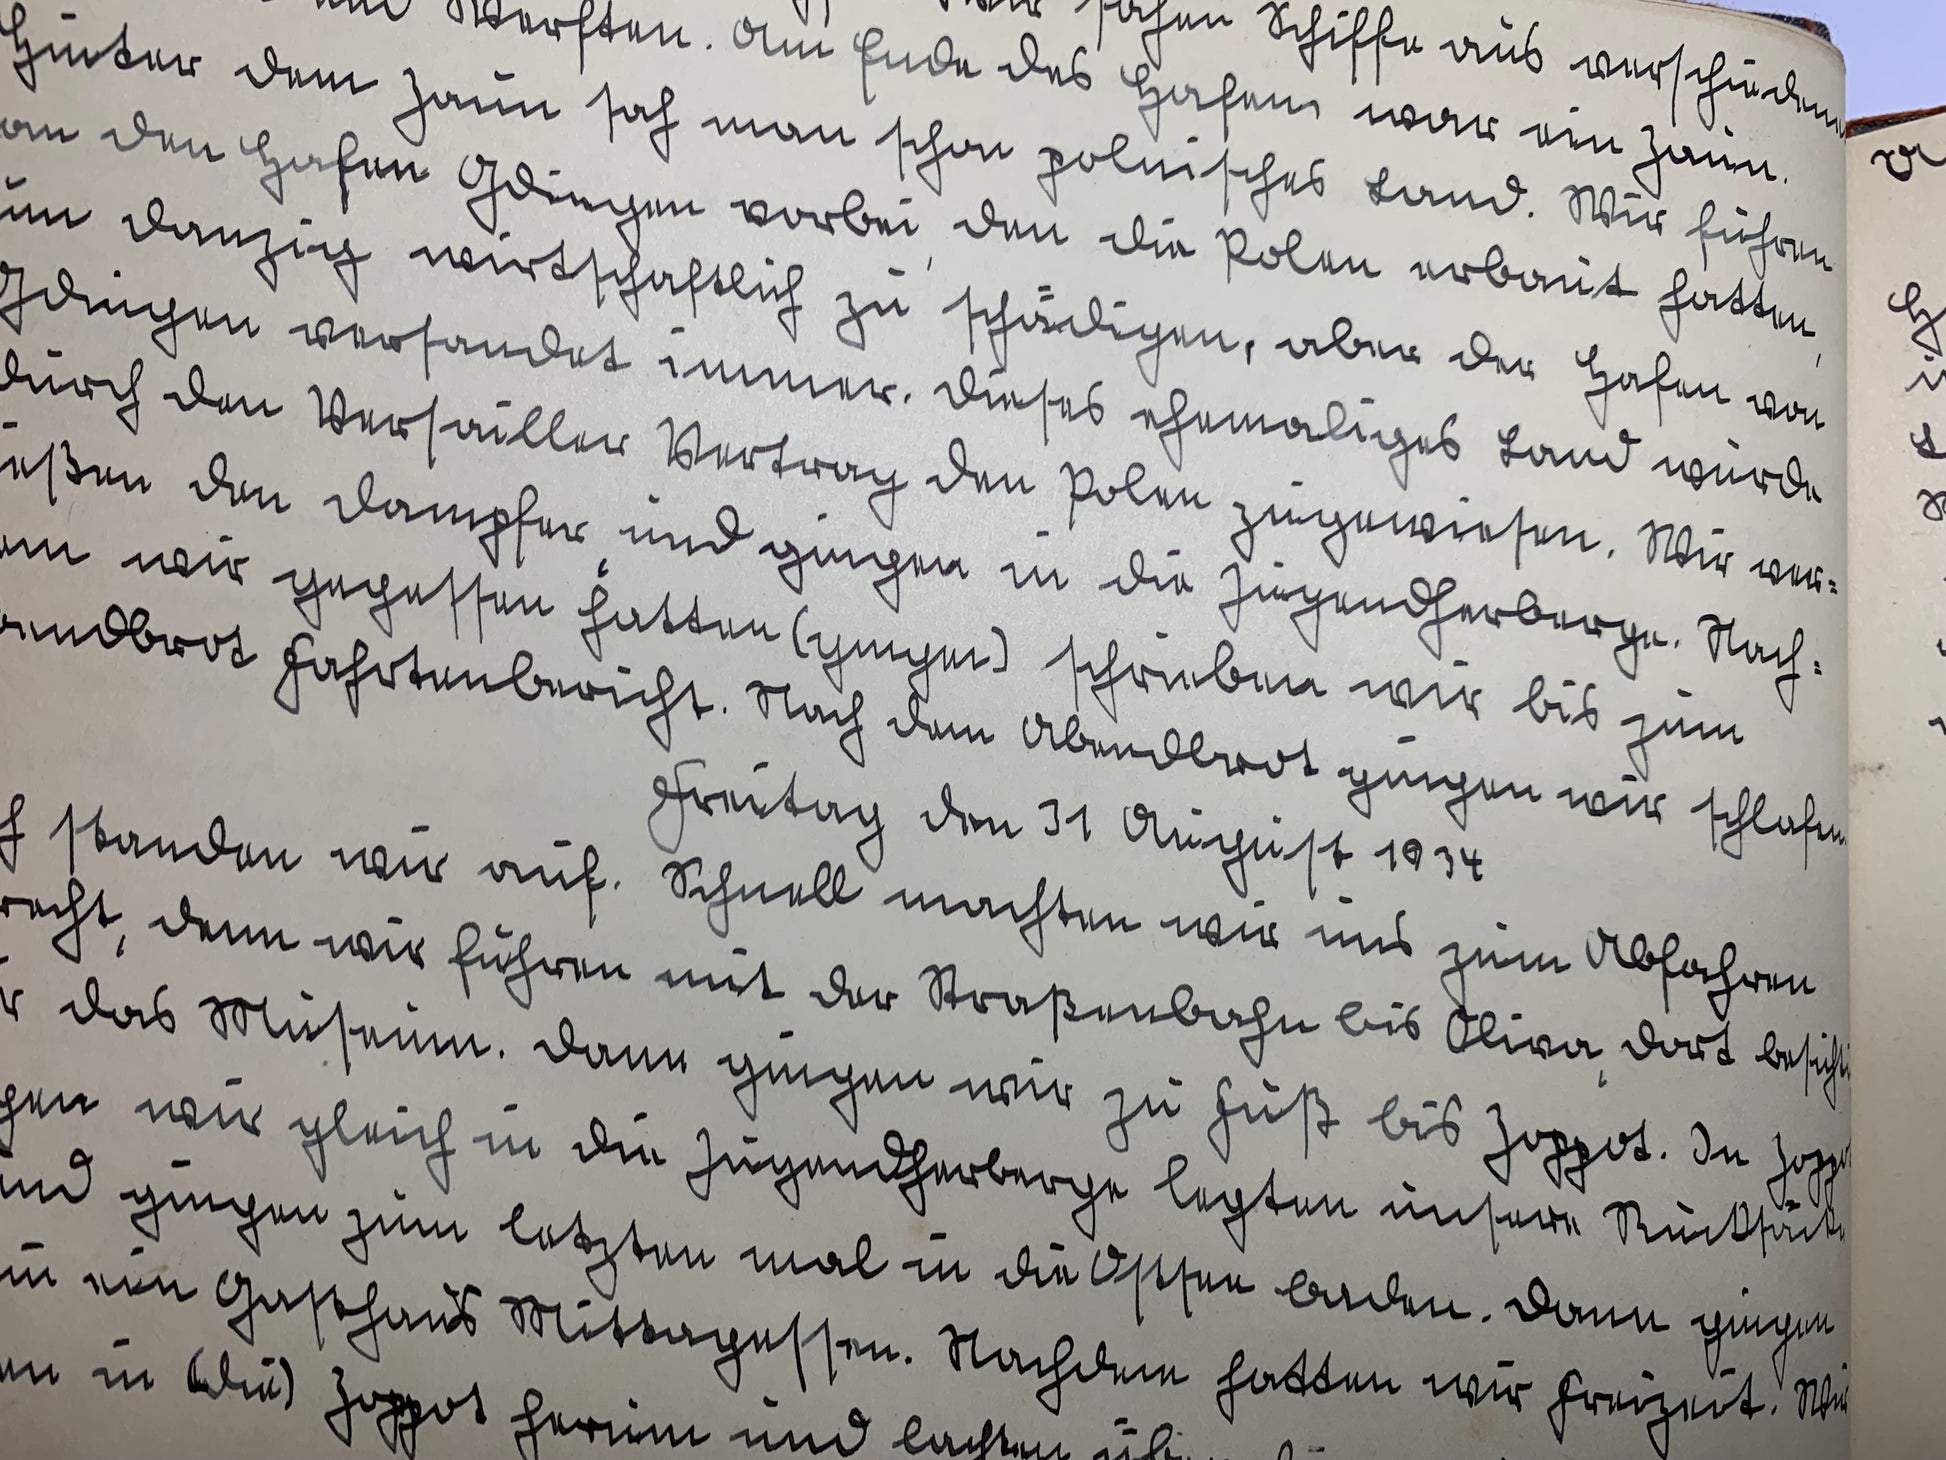 und Werften. Wir sahen Schiffe aus verschiedenen
Hinter dem Zaun sah man schon polnisches Land. Wir fuhren
Am Ende des Hafens war ein Zaun.
an den Hafen Gdingen vorbei, den die Polen erbaut hatten,
um Danzig wirtschaftlich zu schädigen, aber der Hafen von
Gdingen versandet immer. Dieses ehemaliges Land wurde
durch den Versailler Vertrag den Polen zugewiesen. Wir ver=
ießen den Dampfer, und gingen in die Jugendherberge. Nach=
em wir gegessen hatten (gingen) schrieben wir bis zum
bendbrot Fahrtenbericht. Nach dem Abendbrot gingen wir schlafen.
Freitag den 31 August 1934
standen wir auf. Schnell machten wir uns zum Abfahren
recht, denn wir fuhren mit der Straßenbahn bis Oliva, dort besichti
r das Museum. Dann gingen wir zu Fuß bis Zoppot. In Zoppo
gen wir gleich in die Jugendherberge legten unsere Rucksäcke
und gingen zum letzten mal in die Ostsee baden. Dann gingen
in ein Gasthaus Mittagessen. Nachdem hatten wir Freizeit. Wir
en in (die) Zoppot herum und lachten